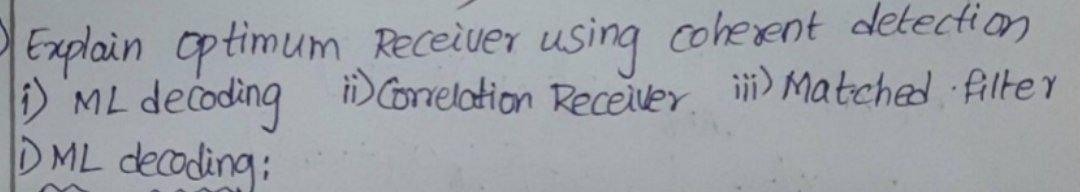 Explain optimum Receiver using coherent detection
i) ML decoding ii) Correlation Receiver iii) Matched filter
i) ML decoding: